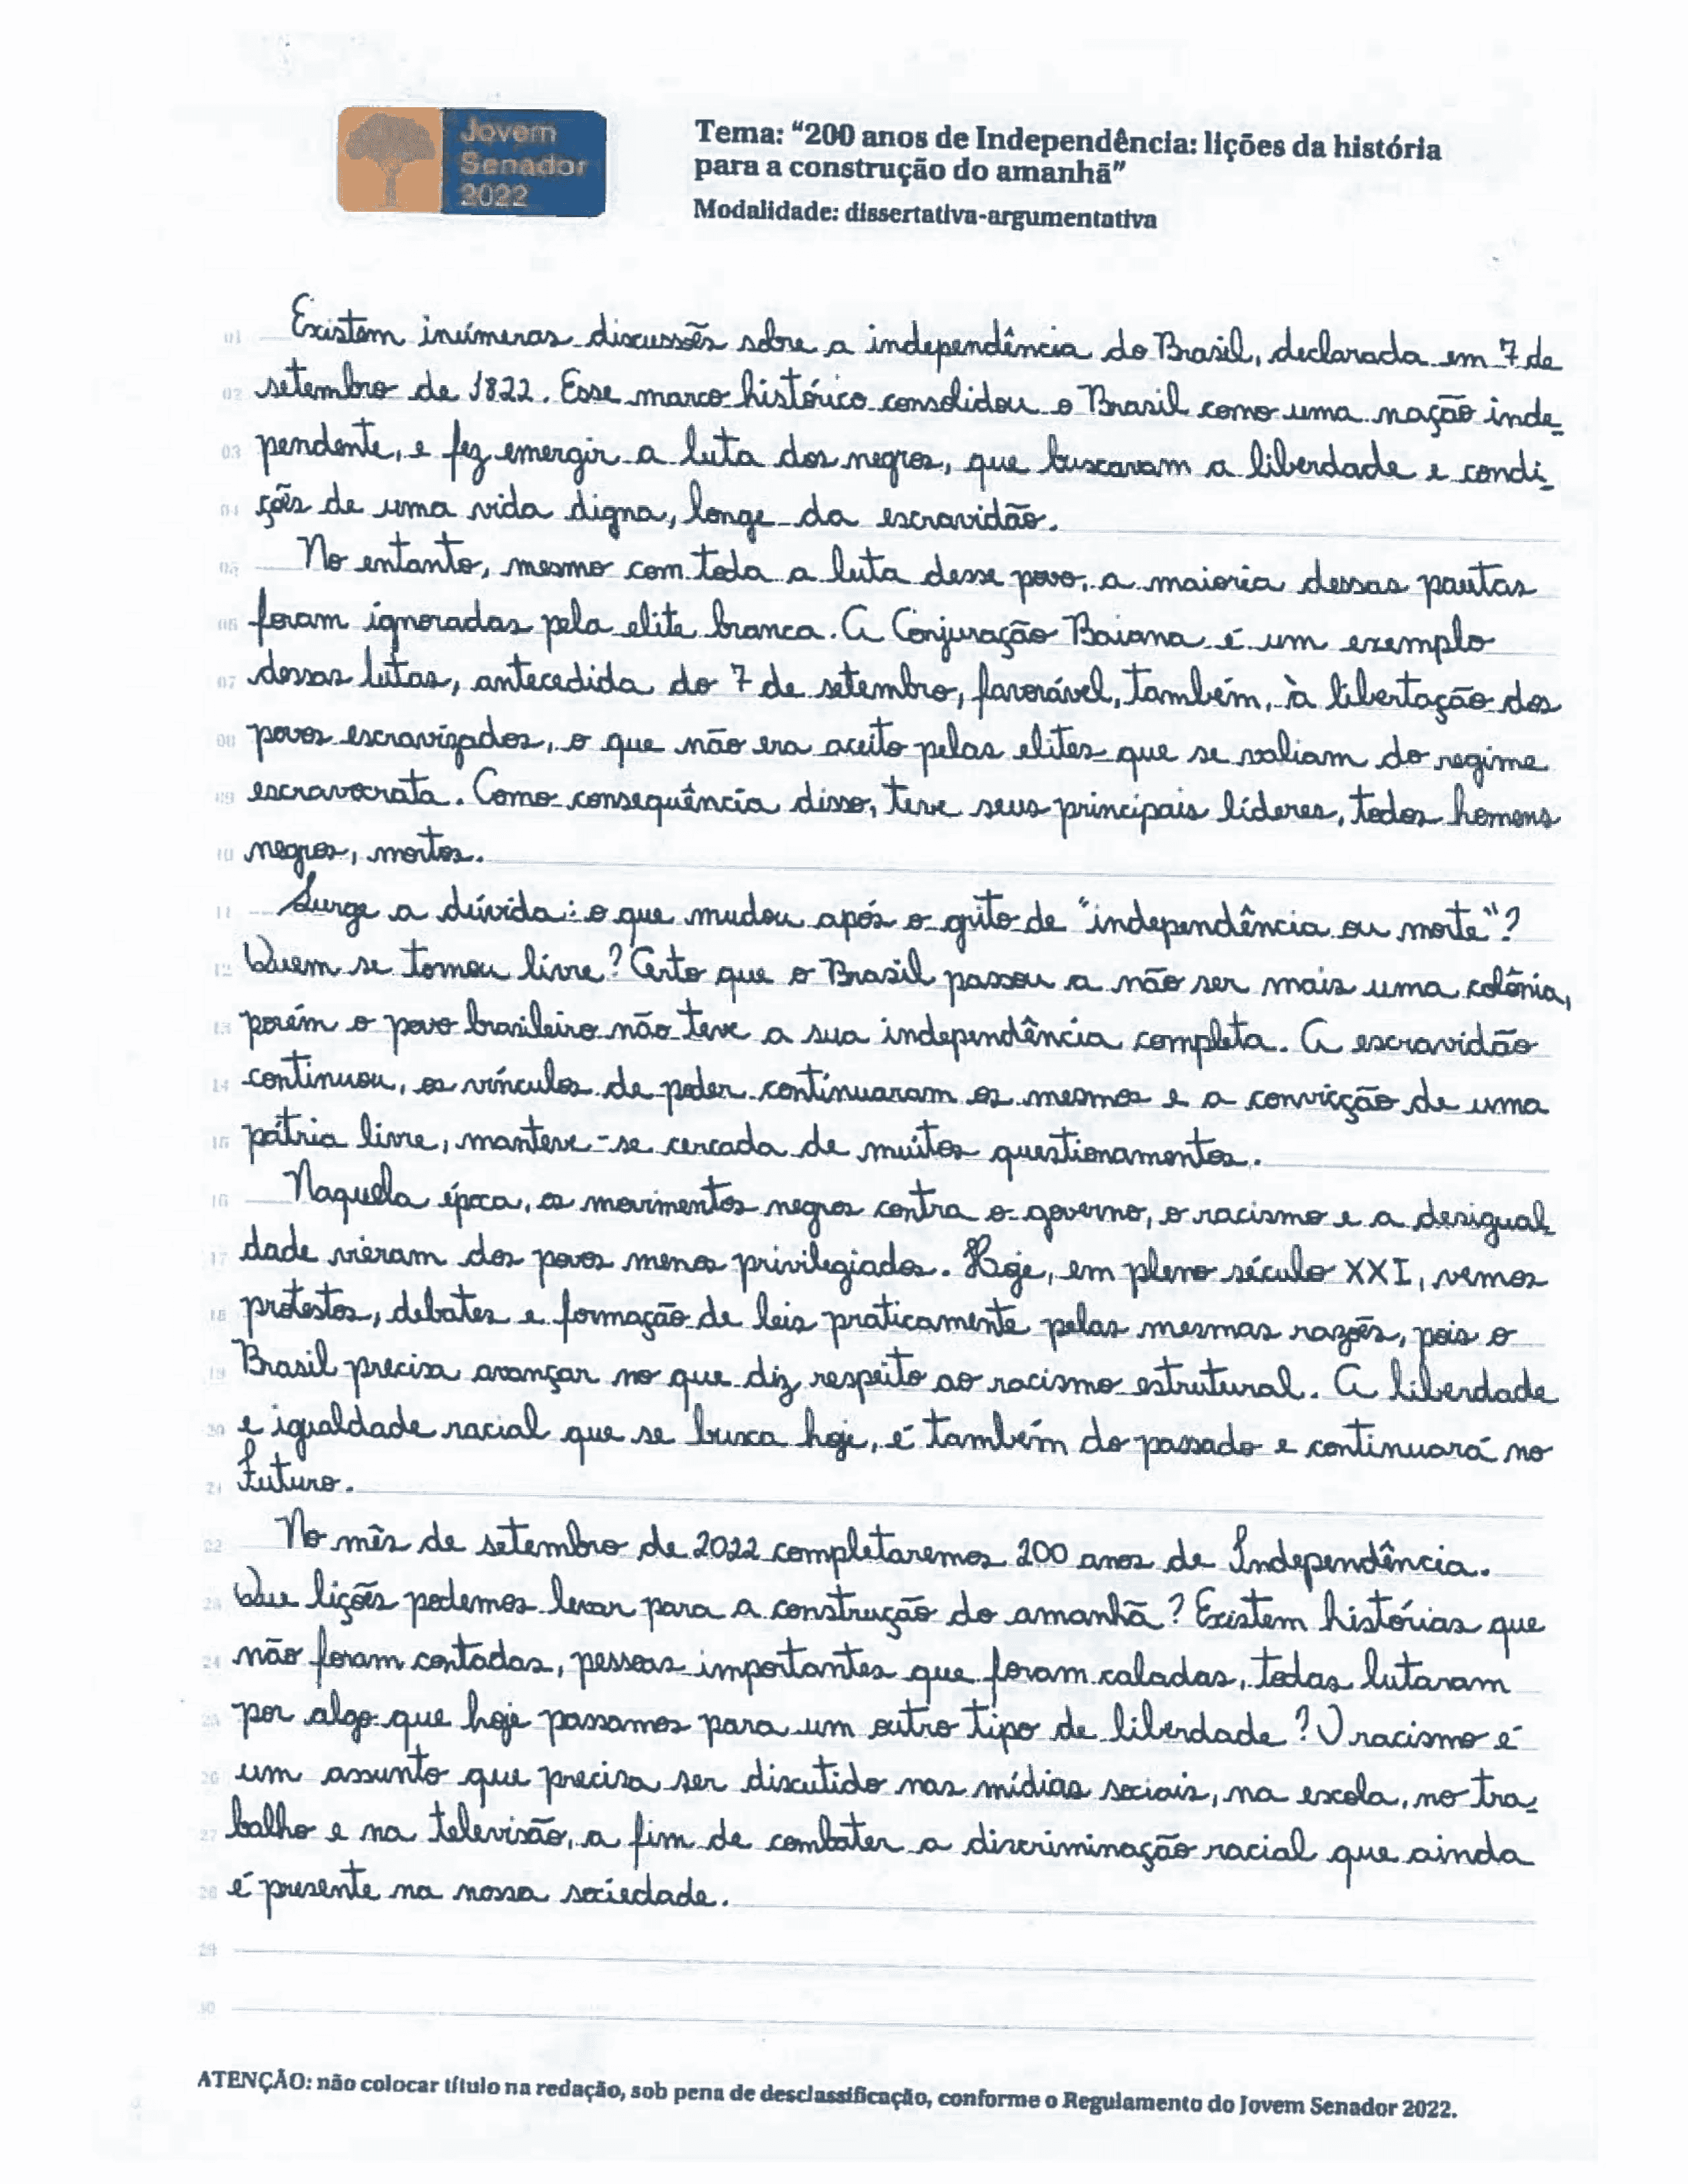 Jovem
Senador
2022
Tema: "200 anos de Independência: lições da história
para a construção do amanhã"
Modalidade: dissertativa-argumentativa
01 Existem inúmeras discussões sobre a independência do Brasil, declarada em 7 de
02 setembro de 1822. Esse marco histórico consolidou o Brasil como uma nação inde-
03 pendente, e fez emergir a luta dos negros, que buscavam a liberdade e condi-
04 ções de uma vida digna, longe da escravidão.
05 No entanto, mesmo com toda a luta desse povo, a maioria dessas pautas
06 foram ignoradas pela elite branca. A Conjuração Baiana é um exemplo
07 dessas lutas, antecedida do 7 de setembro, favorável, também, à libertação dos
08 povos escravizados, o que não era aceito pelas elites que se valiam do regime
09 escravocrata. Como consequência disso, teve seus principais líderes, todos homens
10 negros, mortos.
11 Surge a dúvida: o que mudou após o grito de "independência ou morte"?
12 Quem se tornou livre? Certo que o Brasil passou a não ser mais uma colônia,
13 porém o povo brasileiro não teve a sua independência completa. A escravidão
14 continuou, os vínculos de poder continuaram os mesmos e a convicção de uma
15 pátria livre, manteve-se cercada de muitos questionamentos.
16 Naquela época, os movimentos negros contra o governo, o racismo e a desigual
17 dade vieram dos povos menos privilegiados. Hoje, em pleno século XXI, vemos
18 protestos, debates e formação de leis praticamente pelas mesmas razões, pois o
19 Brasil precisa avançar no que diz respeito ao racismo estrutural. A liberdade
20 e igualdade racial que se busca hoje, é também do passado e continuará no
21 futuro.
22 No mês de setembro de 2022 completaremos 200 anos de Independência.
23 Que lições podemos levar para a construção do amanhã? Existem histórias que
24 não foram contadas, pessoas importantes que foram caladas, todas lutaram
25 por algo que hoje passamos para um outro tipo de liberdade? O racismo é
26 um assunto que precisa ser discutido nas mídias sociais, na escola, no tra-
27 balho e na televisão, a fim de combater a discriminação racial que ainda
28 é presente na nossa sociedade.
29
30
ATENÇÃO: não colocar título na redação, sob pena de desclassificação, conforme o Regulamento do Jovem Senador 2022.